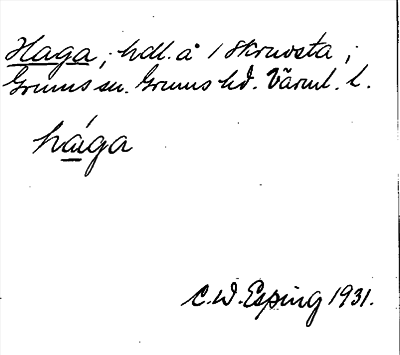 Haga, hdl. å 1 Skruvsta,
Grums sn. Grums hd. Värml. l.
håga
C.W. Esping 1931.